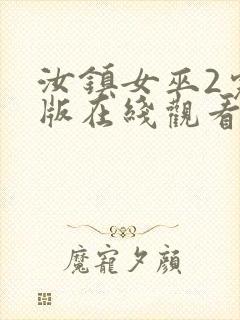 汝鎮女巫2
版在綫觀看
魔寵夕顔